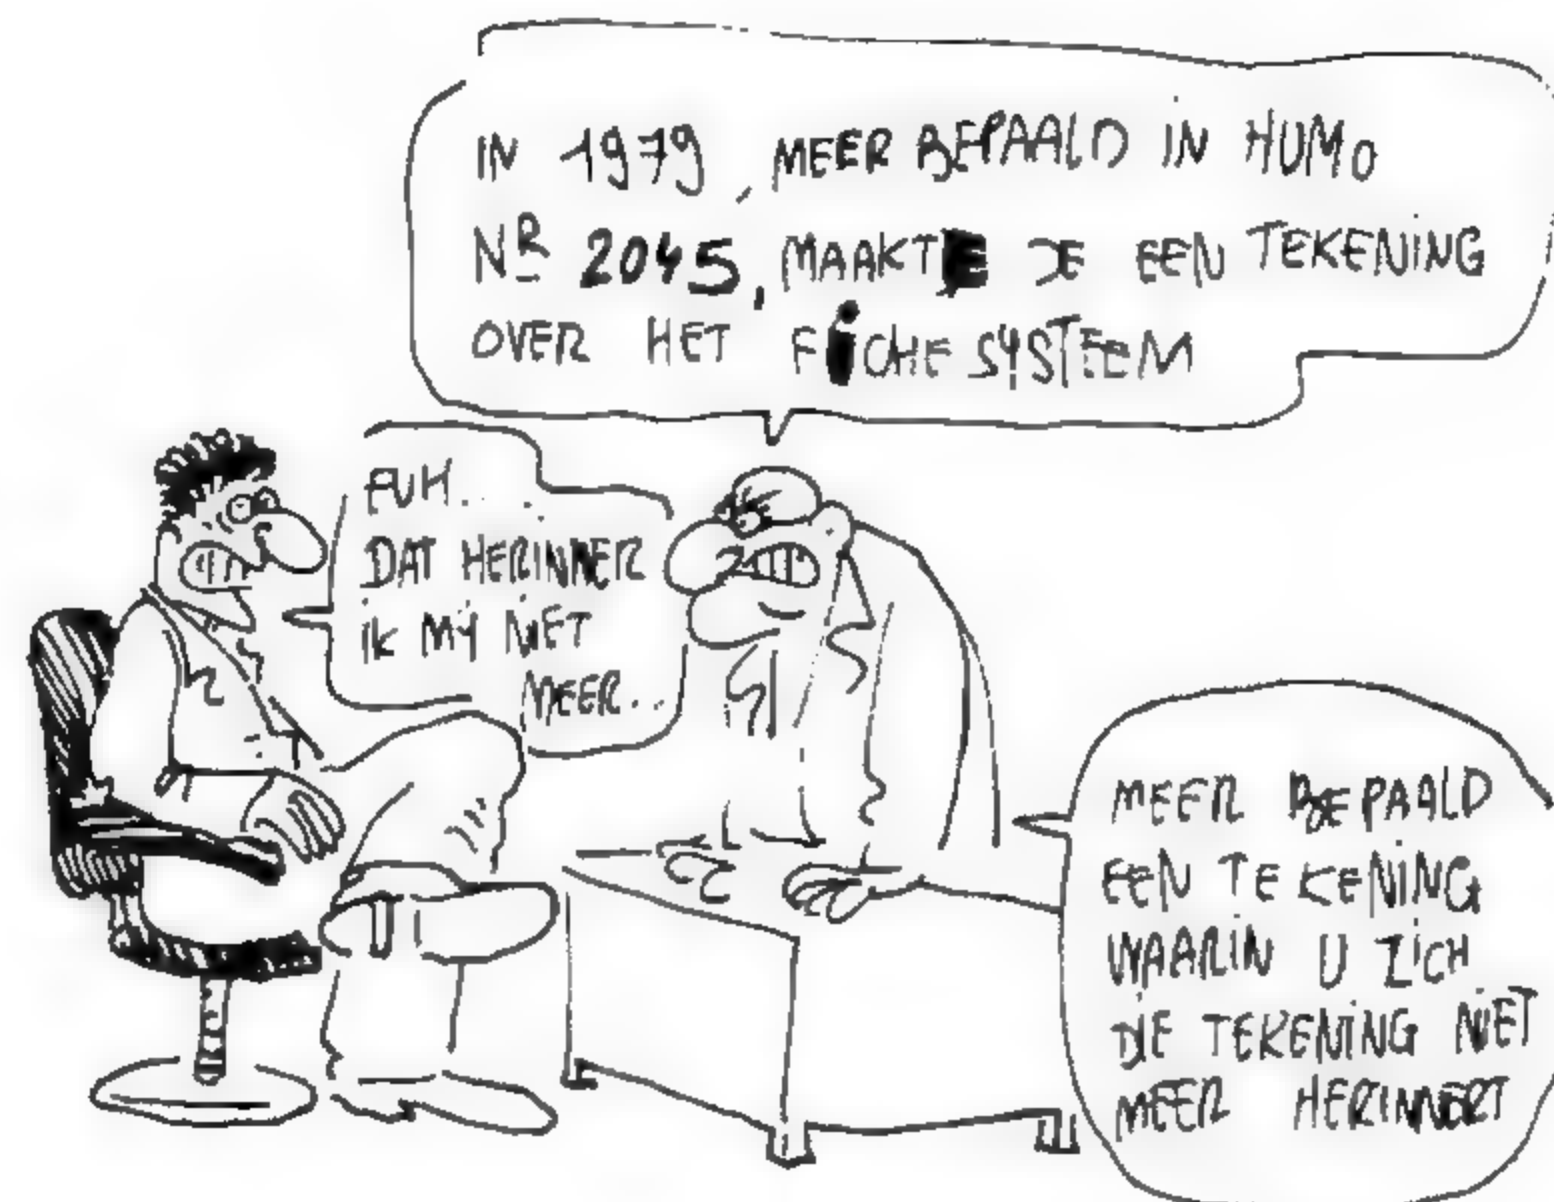 IN 1979, MEER BEPAALD IN HUMO
NR 2045, MAAKTE JE EEN TEKENING
OVER HET FICHESYSTEEM
EUH...
DAT HERINNER
IK MIJ NIET
MEER...
MEER BEPAALD
EEN TEKENING
WAARIN U ZICH
DIE TEKENING NIET
MEER HERINNERT